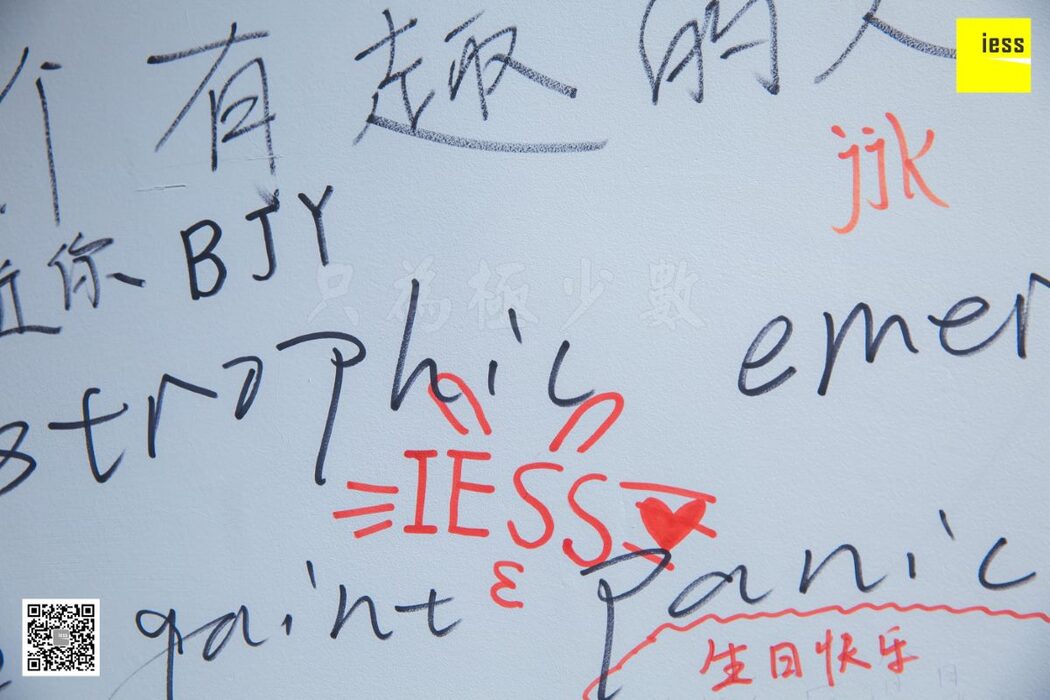 个有趣的人
iess
jjk
近你 BJY
只為極少數
strophic emer
IESS
ε
gaint panic
生日快乐